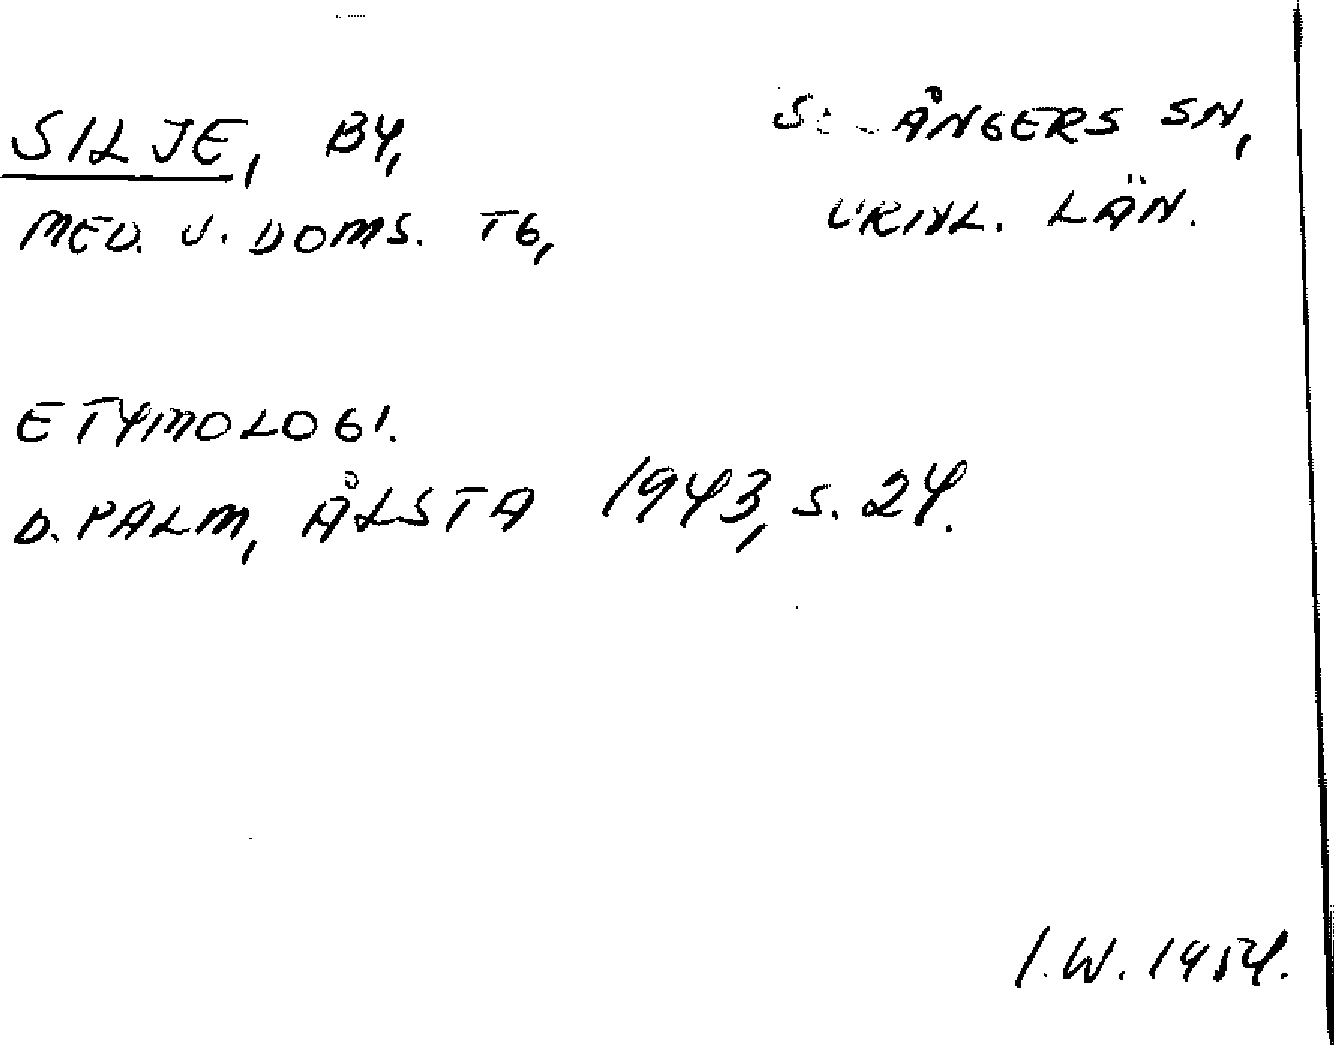 SILJE, BY, SELÅNGERS SN,
MED. V. DOMS. TG, VRNL. LÄN.
ETYMOLOGI.
D. PALM, ÅLSTA 1943, S. 24.
I.W. 1954.